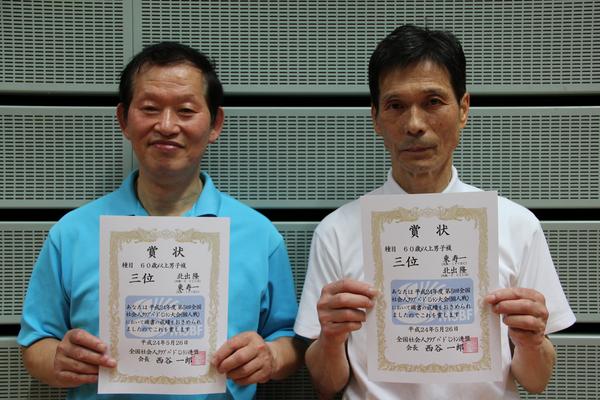 賞状
種目 60歳以上男子複
三位 北出 隆
東 寿一
あなたは平成24年度 第5回全国
社会人クラブバドミントン大会(個人戦)
において頭書の成績をおさめられ
ましたのでこれを賞します
平成24年5月26日
全国社会人クラブバドミントン連盟
会長 西谷 一郎
賞状
種目 60歳以上男子複
三位 東 寿一
北出 隆
あなたは平成24年度 第5回全国
社会人クラブバドミントン大会(個人戦)
において頭書の成績をおさめられ
ましたのでこれを賞します
平成24年5月26日
全国社会人クラブバドミントン連盟
会長 西谷 一郎